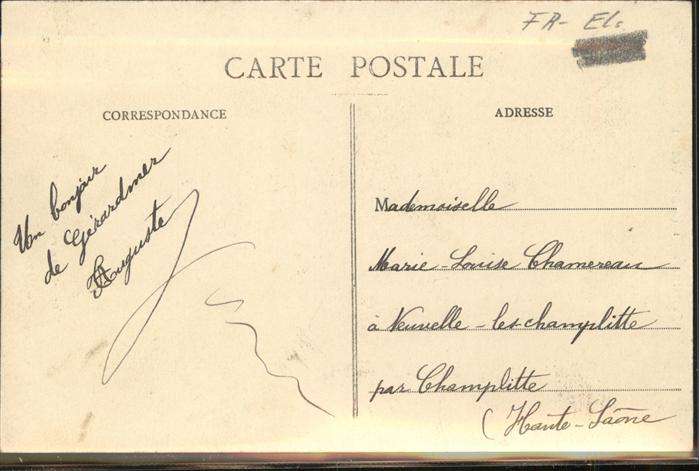 FR- El.
CARTE POSTALE
CORRESPONDANCE
ADRESSE
Un bonjour
de Gérardmer
Auguste
Mademoiselle
Marie-Louise Chamereau
à Neuvelle-les champlitte
par Champlitte
(Haute-Saône